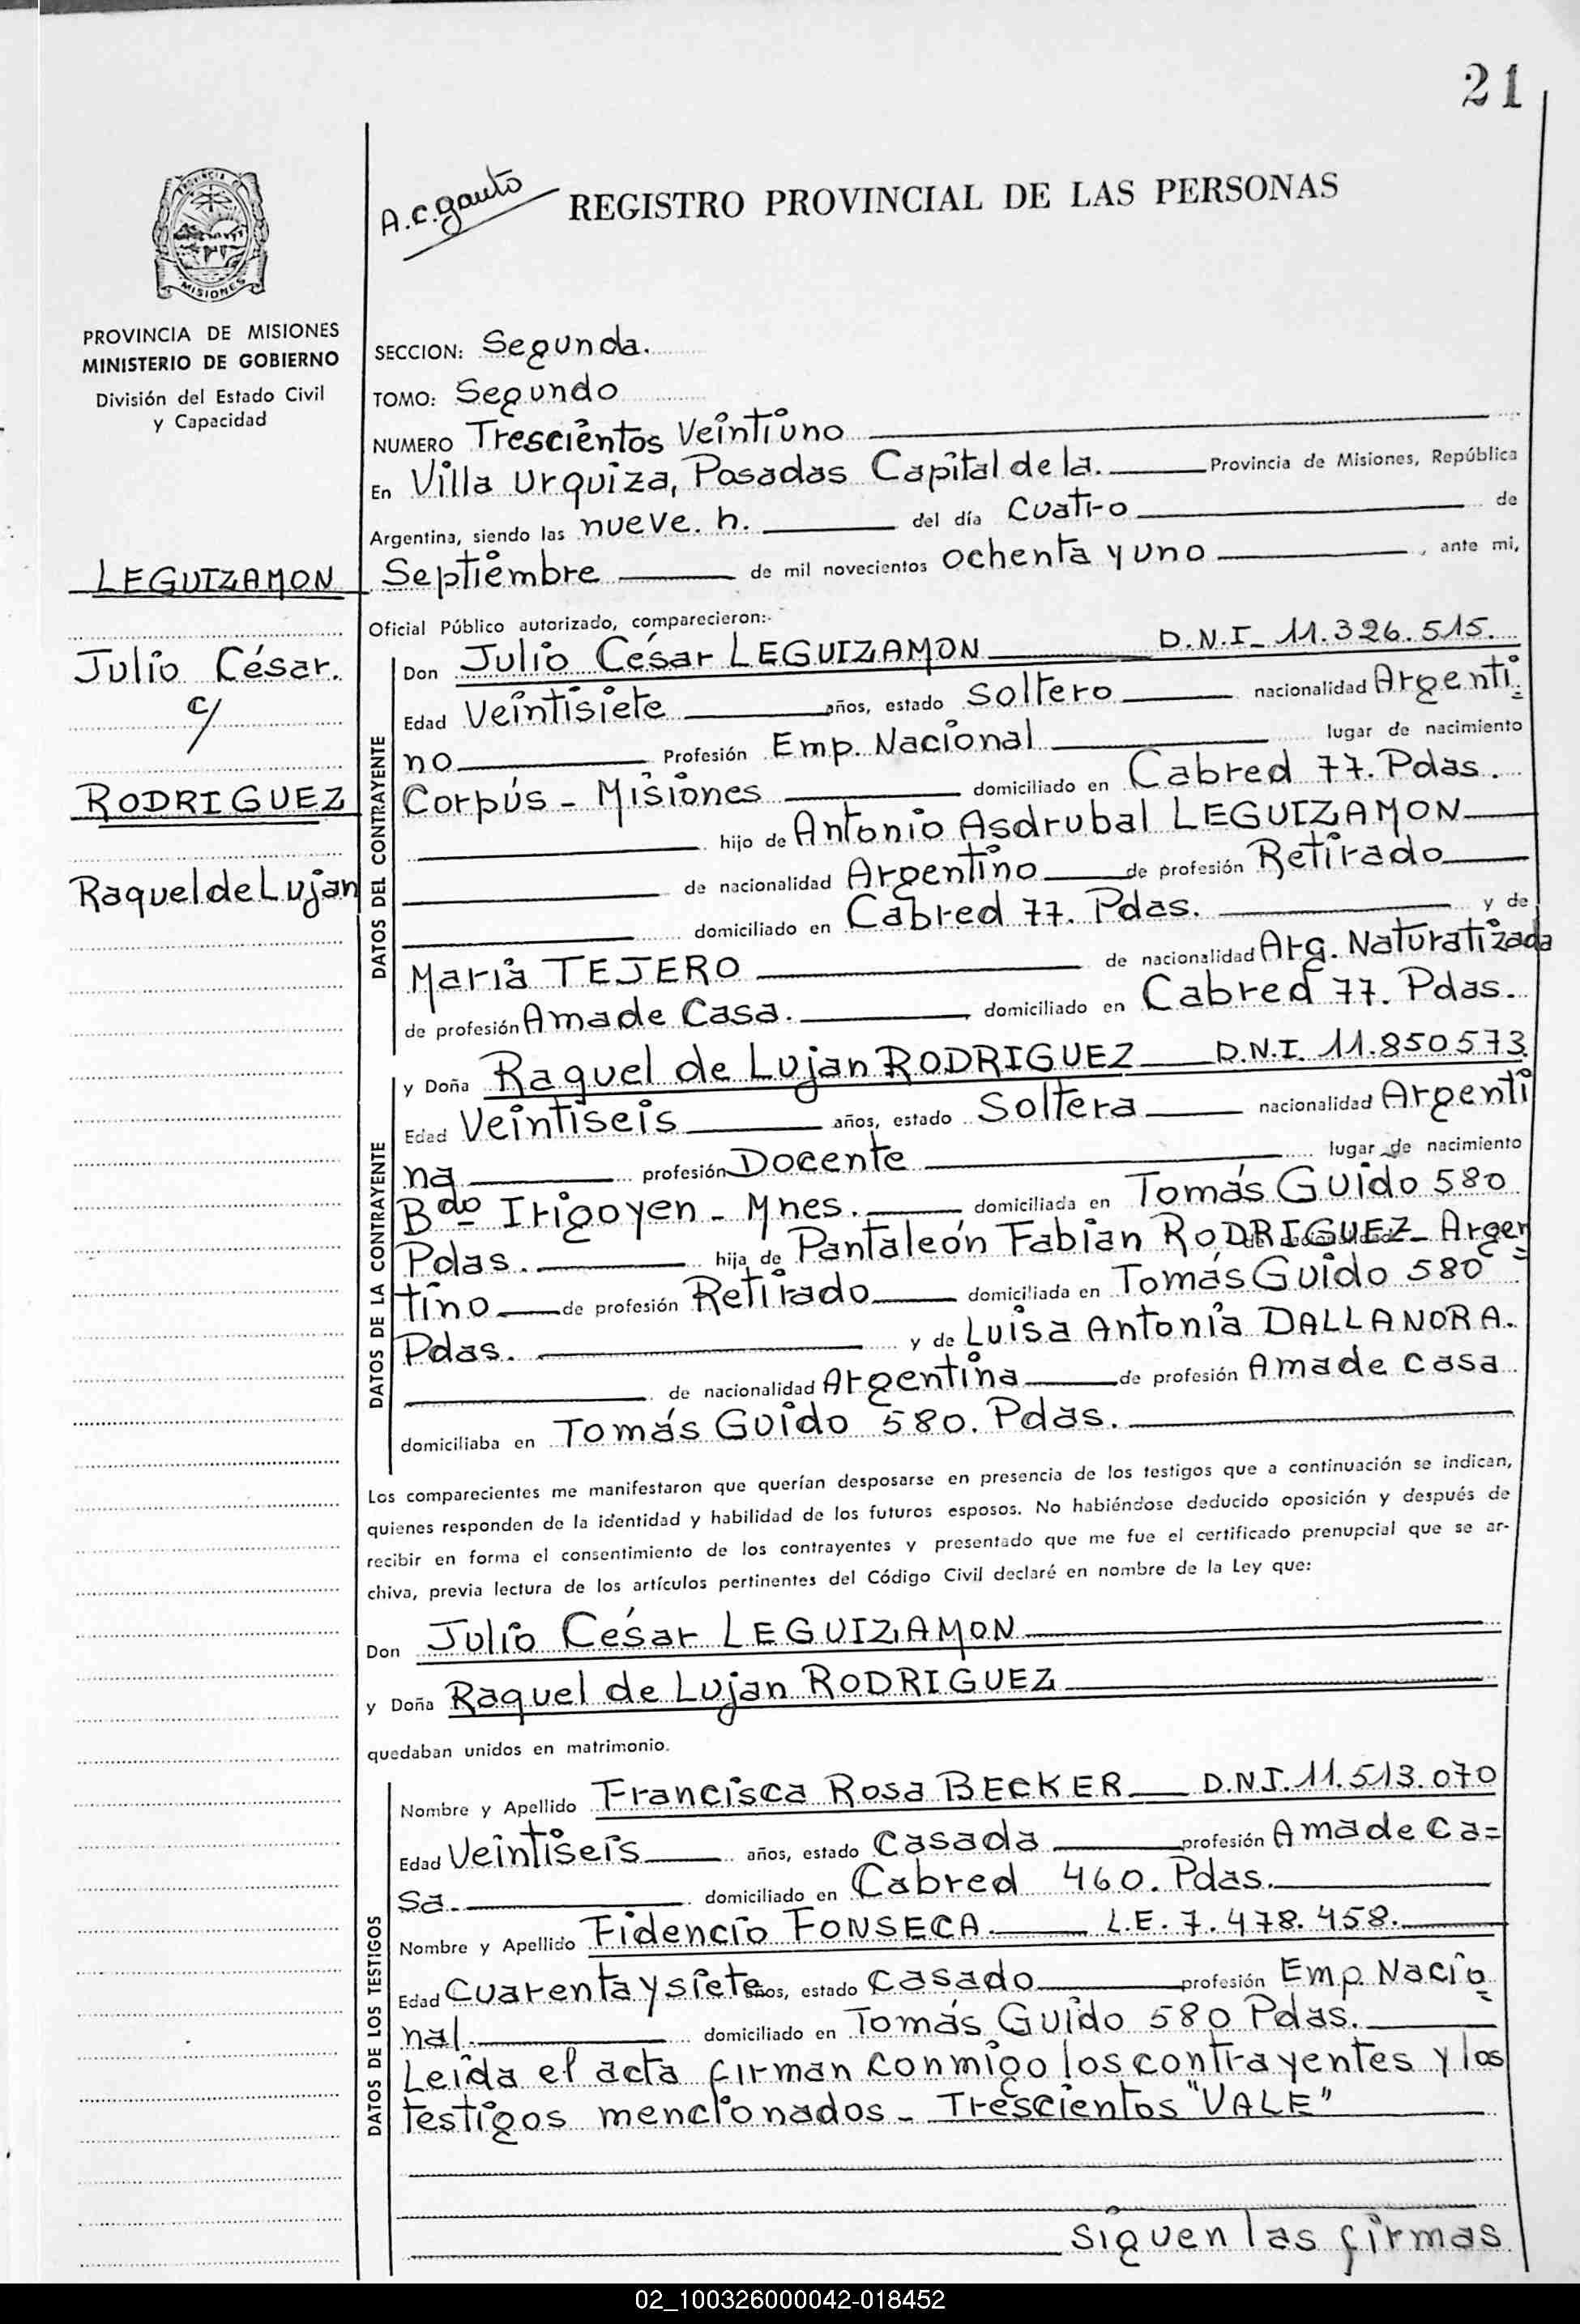 21
A.C. Gauto
REGISTRO PROVINCIAL DE LAS PERSONAS
PROVINCIA DE MISIONES
MINISTERIO DE GOBIERNO
División del Estado Civil
y Capacidad
SECCION: Segunda.
TOMO: Segundo
NUMERO Trescientos Veintiuno
En Villa Urquiza, Posadas Capital de la. Provincia de Misiones, República
Argentina, siendo las nueve. h. del día Cuatro de
Septiembre de mil novecientos ochenta y uno, ante mi,
Oficial Público autorizado, comparecieron:-
LEGUIZAMON
Julio César.
c/
RODRIGUEZ
Raquel de Lujan
DATOS DEL CONTRAYENTE
Don Julio César LEGUIZAMON D.N.I_ 11.326.515.
Edad Veintisiete años, estado Soltero nacionalidad Argenti=
no Profesión Emp. Nacional lugar de nacimiento
Corpus - Misiones domiciliado en Cabred 77. Pdas.
hijo de Antonio Asdrubal LEGUIZAMON
de nacionalidad Argentino de profesión Retirado
domiciliado en Cabred 77. Pdas. y de
Maria TEJERO de nacionalidad Arg. Naturatizada
de profesión Ama de Casa. domiciliado en Cabred 77. Pdas.
DATOS DE LA CONTRAYENTE
y Doña Raquel de Lujan RODRIGUEZ D.N.I. 11.850573
Edad Veintiseis años, estado Soltera nacionalidad Argenti
na profesión Docente lugar de nacimiento
Bdo Irigoyen - Mnes. domiciliada en Tomás Guido 580
Pdas. hija de Pantaleón Fabian RODRIGUEZ - Argen=
tino de profesión Retirado domiciliada en Tomás Guido 580
Pdas. y de Luisa Antonia DALLANORA.
de nacionalidad Argentina de profesión Ama de casa
domiciliaba en Tomás Guido 580. Pdas.
Los comparecientes me manifestaron que querían desposarse en presencia de los testigos que a continuación se indican,
quienes responden de la identidad y habilidad de los futuros esposos. No habiéndose deducido oposición y después de
recibir en forma el consentimiento de los contrayentes y presentado que me fue el certificado prenupcial que se ar-
chiva, previa lectura de los artículos pertinentes del Código Civil declaré en nombre de la Ley que:
Don Julio César LEGUIZAMON
y Doña Raquel de Lujan RODRIGUEZ
quedaban unidos en matrimonio.
DATOS DE LOS TESTIGOS
Nombre y Apellido Francisca Rosa BECKER D.N.I. 11.513.070
Edad Veintiseis años, estado Casada profesión Ama de Ca=
sa. domiciliado en Cabred 460. Pdas.
Nombre y Apellido Fidencio FONSECA. L.E. 7.478.458.
Edad Cuarenta y siete años, estado Casado profesión Emp Nacio=
nal. domiciliado en Tomás Guido 580 Pdas.
Leida el acta firman conmigo los contrayentes y los
testigos mencionados - Trescientos "VALE"
Siguen las firmas
02_100326000042-018452